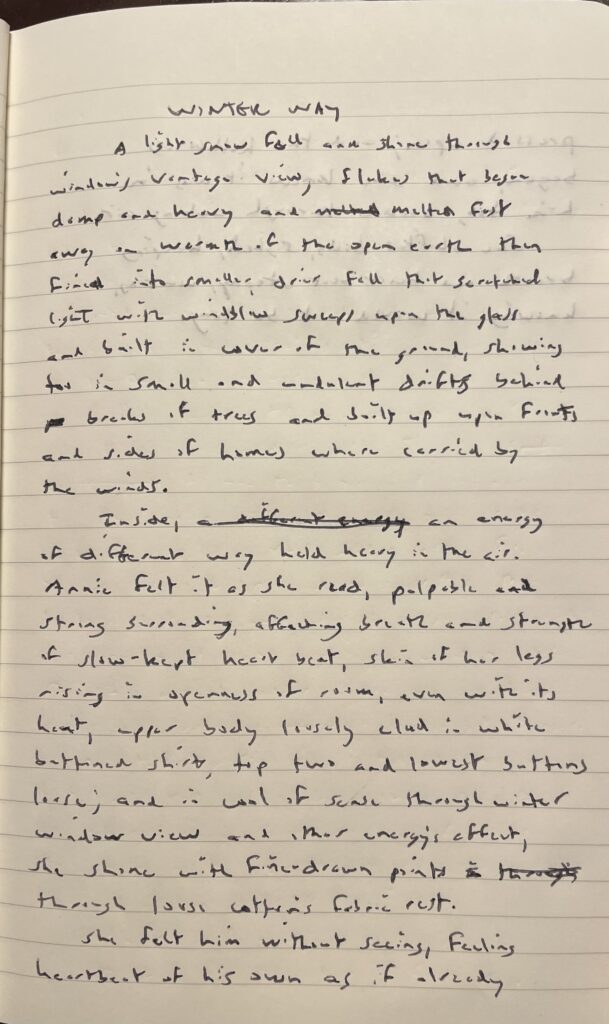 WINTER WAY
A light snow fell and shone through
window's vantage view, flakes that began
damp and heavy and melted fast
away on warmth of the open earth then
fined into smaller drier fall that scratched
light with windblow sweeps upon the glass
and built in cover of the ground, showing
too in small and undulant drifts behind
breaks of trees and built up upon fronts
and sides of homes where carried by
the winds.
Inside, a different energy an energy
of different way held heavy in the air.
Annie felt it as she read, palpable and
strong surrounding, affecting breath and strength
of slow-kept heart beat, skin of her legs
rising in openness of room, even with its
heat, upper body loosely clad in white
buttoned shirt, top two and lowest buttons
loose; and in cool of sense through winter
window view and other energy's effect,
she shone with fine-drawn points through
through loose cotton's fabric rest.
She felt him without seeing, feeling
heartbeat of his own as if already